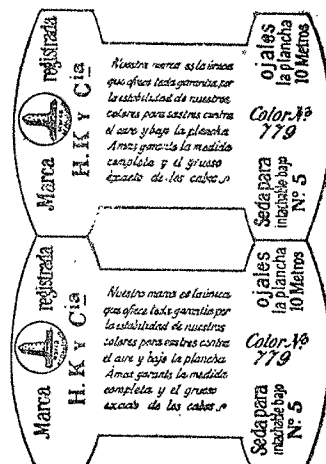 Marca registrada
H.K Y Cía
Nuestra marca es la única
que ofrece toda garantia por
la estabilidad de nuestros
colores para sastres contra
el aire y bajo la plancha
Amas garants la medida
completa y el grueso
exacto de los cabos
Seda para ojales
intachable bajo la plancha
Nº 5 10 Metros
Color Nº
779
Marca registrada
H.K Y Cía
Nuestra marca es la única
que ofrece toda garantia por
la estabilidad de nuestros
colores para sastres contra
el aire y bajo la plancha
Amas garants la medida
completa y el grueso
exacto de los cabos
Seda para ojales
intachable bajo la plancha
Nº 5 10 Metros
Color Nº
779